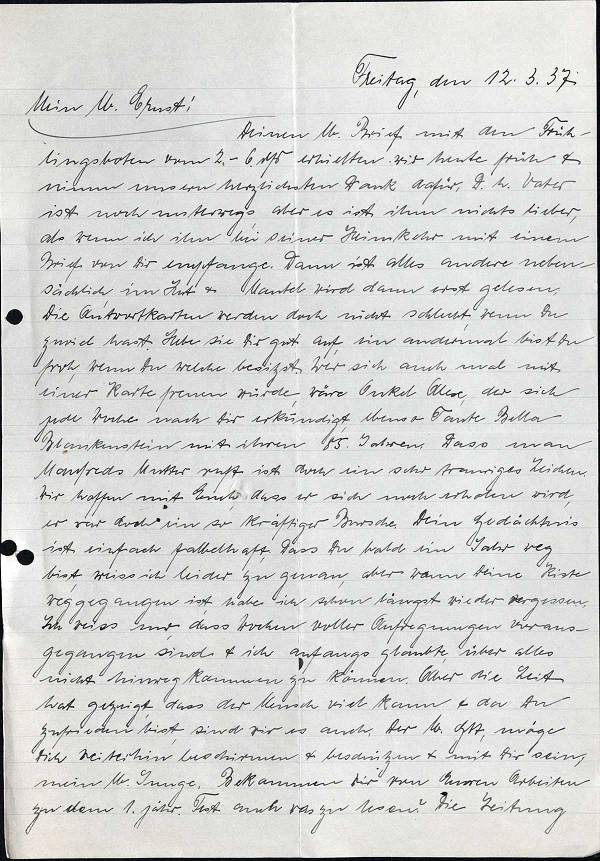 Freitag, den 12.3.37.
Mein lb. Ernst!
Deinen lb. Brief mit den Früh-
lingsboten vom 2.-6. ds erhielten wir heute früh &
nimm unsern herzlichsten Dank dafür. D. lb. Vater
ist noch unterwegs aber es ist ihm nichts lieber,
als wenn ich ihn bei seiner Heimkehr mit einem
Brief von Dir empfange. Dann ist alles andere neben-
sächlich im Hut & Mantel wird dann erst gelesen.
Die Antwortkarten werden doch nicht schlecht, wenn Du
zuviel hast. Hebe sie Dir gut auf, ein andermal bist Du
froh, wenn Du welche besitzt. Wer sich auch mal mit
einer Karte freuen würde, wäre Onkel Alex, der sich
jede Woche nach Dir erkundigt, ebenso Tante Bella
Blankenstein mit ihren 85. Jahren. Dass man
Manfreds Mutter ruft ist doch ein sehr trauriges Zeichen.
Wir hoffen mit Euch, dass er sich noch erholen wird,
er war doch ein so kräftiger Bursche. Dein Gedächtnis
ist einfach fabelhaft. Dass Du bald ein Jahr weg
bist, weiss ich leider zu genau, aber wann Deine Kiste
weggegangen ist habe ich schon längst wieder vergessen.
Ich weiss nur dass Wochen voller Aufregungen voraus-
gegangen sind & ich anfangs glaubte, über alles
nicht hinwegkommen zu können. Aber die Zeit
hat gezeigt, dass der Mensch viel kann & da Du
zufrieden bist, sind wir es auch. Der lb. Gtt, möge
Dich weiterhin beschirmen & beschützen & mit Dir sein,
mein lb. Junge. Bekommen wir von Euren Arbeiten
zu dem 1. jähr. Fest auch was zu lesen? Die Zeitung